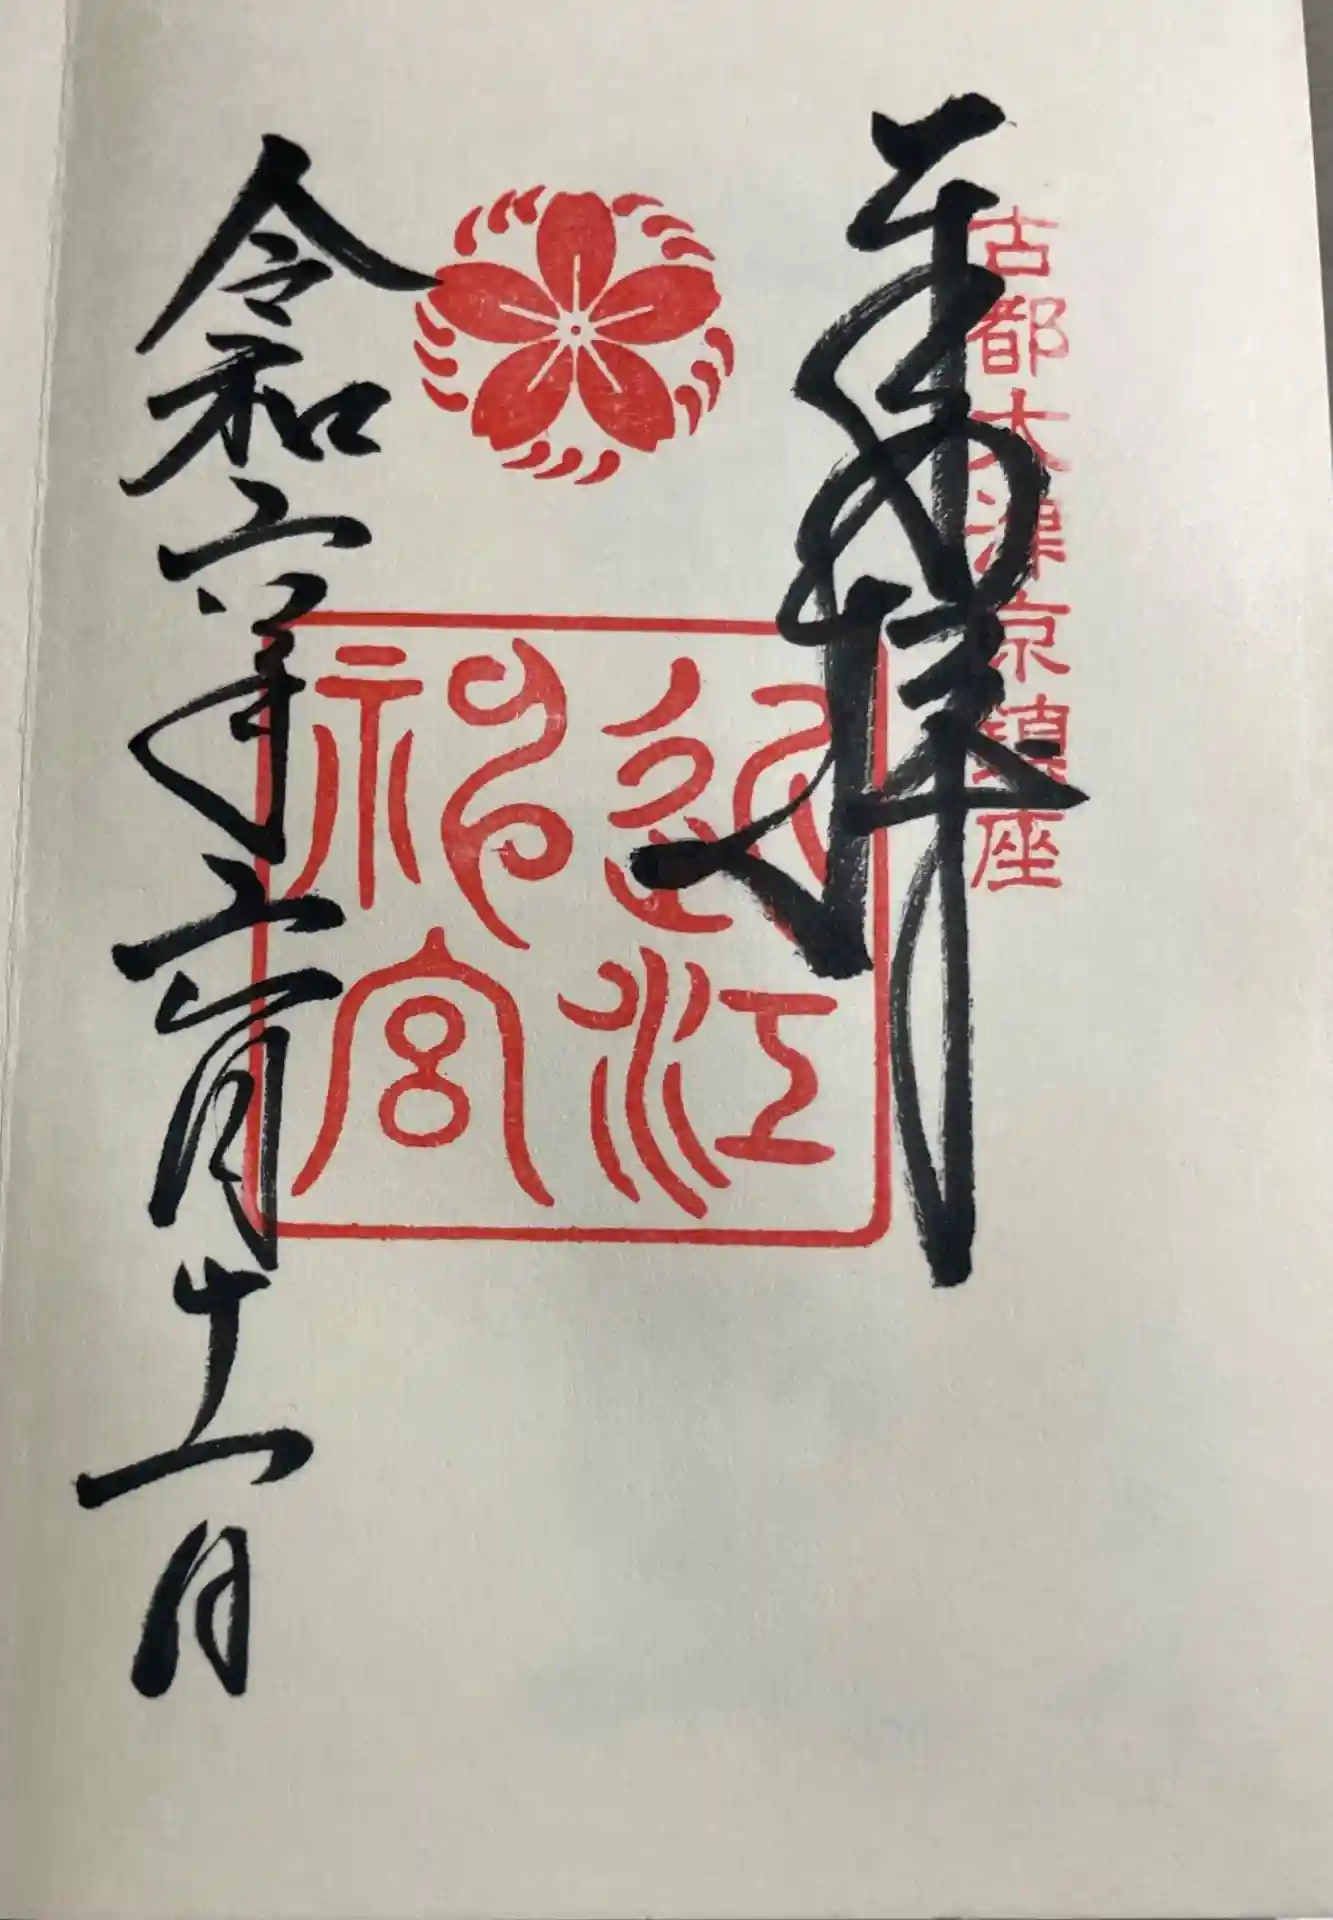 奉拝
古都大津京鎮座
近江神宮
令和六年六月十一日